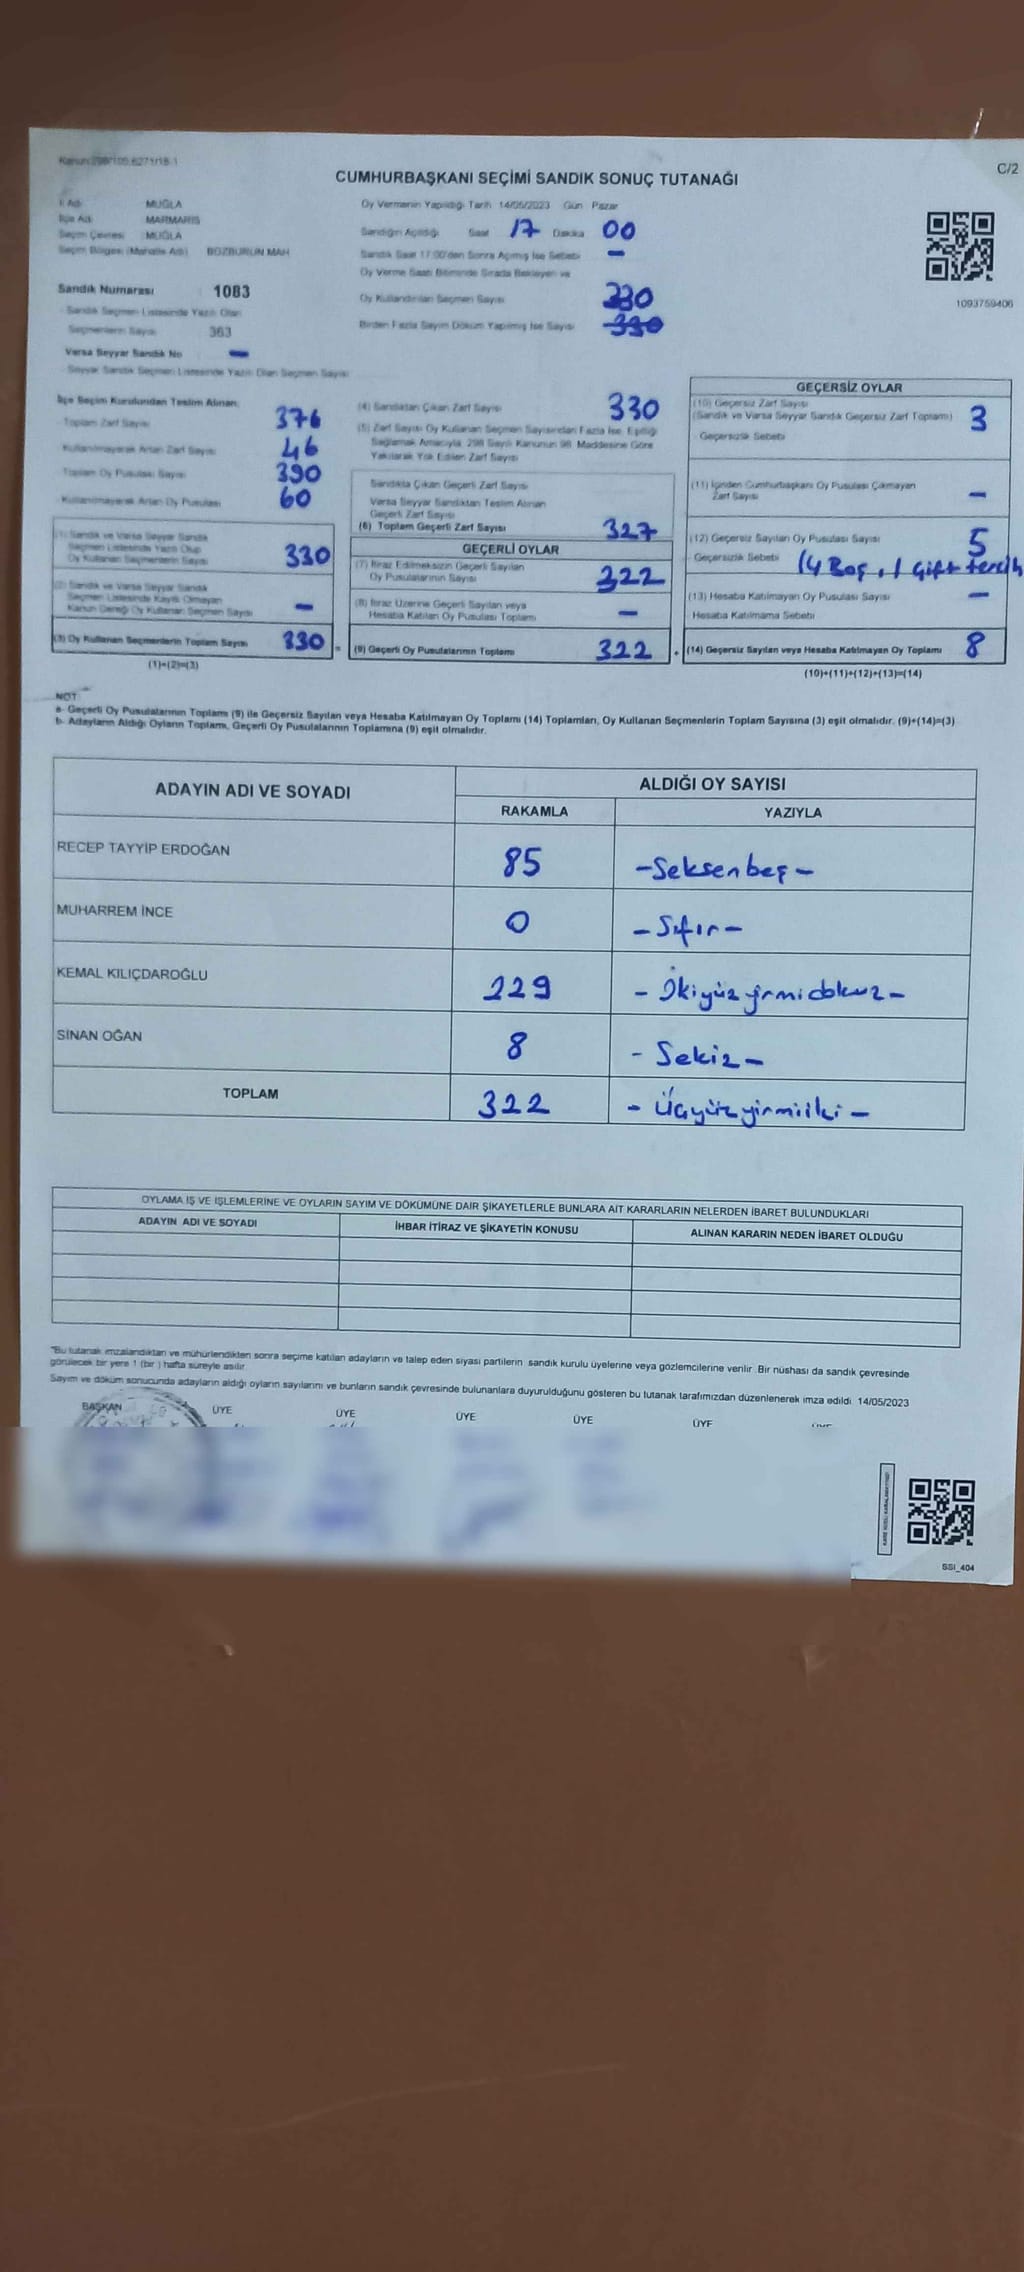 Kanun:298/105;6271/18-1
C/2
CUMHURBAŞKANI SEÇİMİ SANDIK SONUÇ TUTANAĞI
İl Adı MUĞLA
İlçe Adı MARMARİS
Seçim Çevresi MUĞLA
Seçim Bölgesi (Mahalle Adı) BOZBURUN MAH
Sandık Numarası 1083
Sandık Seçmen Listesinde Yazılı Olan
Seçmenlerin Sayısı 363
Varsa Seyyar Sandık No –
Seyyar Sandık Seçmen Listesinde Yazılı Olan Seçmen Sayısı
Oy Vermenin Yapıldığı Tarih 14/05/2023 Gün Pazar
Sandığın Açıldığı Saat 17 Dakika 00
Sandık Saat 17:00'den Sonra Açımış İse Sebebi –
Oy Verme Saati Bitiminde Sırada Bekleyen ve
Oy Kullandırılan Seçmen Sayısı 330
Birden Fazla Sayım Döküm Yapılmış İse Sayısı 330
1093759406
İlçe Seçim Kurulundan Teslim Alınan;
Toplam Zarf Sayısı 376
Kullanılmayarak Artan Zarf Sayısı 46
Toplam Oy Pusulası Sayısı 390
Kullanılmayarak Artan Oy Pusulası 60
(1) Sandık ve Varsa Seyyar Sandık
Seçmen Listesinde Yazılı Olup
Oy Kullanan Seçmenlerin Sayısı 330
(2) Sandık ve Varsa Seyyar Sandık
Seçmen Listesinde Kayıtlı Olmayan
Kanun Gereği Oy Kullanan Seçmen Sayısı –
(3) Oy Kullanan Seçmenlerin Toplam Sayısı 330
(1)+(2)=(3)
(4) Sandıktan Çıkan Zarf Sayısı 330
(5) Zarf Sayısı Oy Kullanan Seçmen Sayısından Fazla İse, Eşitliği
Sağlamak Amacıyla 298 Sayılı Kanunun 98. Maddesine Göre
Yakılarak Yok Edilen Zarf Sayısı
Sandıkta Çıkan Geçerli Zarf Sayısı
Varsa Seyyar Sandıktan Teslim Alınan
Geçerli Zarf Sayısı
(6) Toplam Geçerli Zarf Sayısı 327
GEÇERLİ OYLAR
(7) İtiraz Edilmeksizin Geçerli Sayılan
Oy Pusulalarının Sayısı 322
(8) İtiraz Üzerine Geçerli Sayılan veya
Hesaba Katılan Oy Pusulası Toplamı –
(9) Geçerli Oy Pusulalarının Toplamı 322
GEÇERSİZ OYLAR
(10) Geçersiz Zarf Sayısı
(Sandık ve Varsa Seyyar Sandık Geçersiz Zarf Toplamı) 3
Geçersizlik Sebebi
(11) İçinden Cumhurbaşkanı Oy Pusulası Çıkmayan
Zarf Sayısı –
(12) Geçersiz Sayılan Oy Pusulası Sayısı 5
Geçersizlik Sebebi (4 Boş, 1 Çift tercih
(13) Hesaba Katılmayan Oy Pusulası Sayısı –
Hesaba Katılmama Sebebi
(14) Geçersiz Sayılan veya Hesaba Katılmayan Oy Toplamı 8
(10)+(11)+(12)+(13)=(14)
NOT:
a- Geçerli Oy Pusulalarının Toplamı (9) ile Geçersiz Sayılan veya Hesaba Katılmayan Oy Toplamı (14) Toplamları, Oy Kullanan Seçmenlerin Toplam Sayısına (3) eşit olmalıdır. (9)+(14)=(3)
b- Adayların Aldığı Oyların Toplamı, Geçerli Oy Pusulalarının Toplamına (9) eşit olmalıdır.
ADAYIN ADI VE SOYADI
ALDIĞI OY SAYISI
RAKAMLA YAZIYLA
RECEP TAYYİP ERDOĞAN 85 -Seksenbeş-
MUHARREM İNCE 0 -Sıfır-
KEMAL KILIÇDAROĞLU 229 - İkiyüz yirmidokuz -
SİNAN OĞAN 8 - Sekiz -
TOPLAM 322 - Üçyüz yirmiiki -
OYLAMA İŞ VE İŞLEMLERİNE VE OYLARIN SAYIM VE DÖKÜMÜNE DAİR ŞİKAYETLERLE BUNLARA AİT KARARLARIN NELERDEN İBARET BULUNDUKLARI
ADAYIN ADI VE SOYADI İHBAR İTİRAZ VE ŞİKAYETİN KONUSU ALINAN KARARIN NEDEN İBARET OLDUĞU
"Bu tutanak imzalandıktan ve mühürlendikten sonra seçime katılan adayların ve talep eden siyasi partilerin sandık kurulu üyelerine veya gözlemcilerine verilir. Bir nüshası da sandık çevresinde
görülecek bir yere 1 (bir) hafta süreyle asılır.
Sayım ve döküm sonucunda adayların aldığı oyların sayılarını ve bunların sandık çevresinde bulunanlara duyurulduğunu gösteren bu tutanak tarafımızdan düzenlenerek imza edildi. 14/05/2023
BAŞKAN ÜYE ÜYE ÜYE ÜYE ÜYE
SSI_404